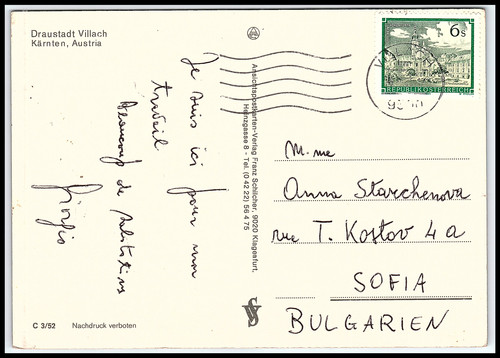 Draustadt Villach
Kärnten, Austria
Je suis ici pour un
travail
Beaucoup de salutations
Giorgio
C 3/52
Nachdruck verboten
Ansichtspostkarten-Verlag Franz Schilcher, 9020 Klagenfurt,
Heinzgasse 8 - Tel. (0 42 22) 56 4 75
6 S
REPUBLIK ÖSTERREICH
M.me
Anna Starchenova
T. Kostov 4 a
SOFIA
BULGARIEN